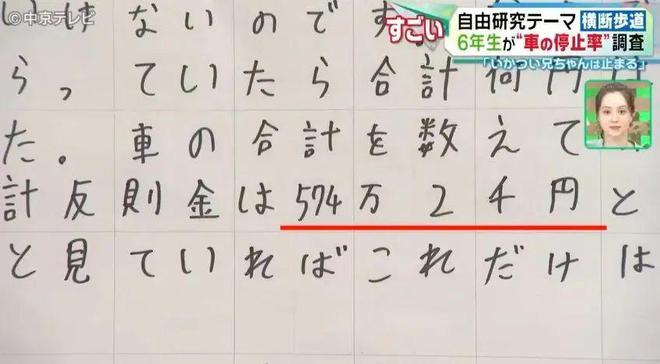 ©中京テレビ
すごい
自由研究テーマ 横断歩道
6年生が"車の停止率"調査
「いかつい兄ちゃんは止まる」
ないので
らっていたら合計何円
た。車の合計を数えて
計反則金は574万2千円と
と見ていればこれだけは